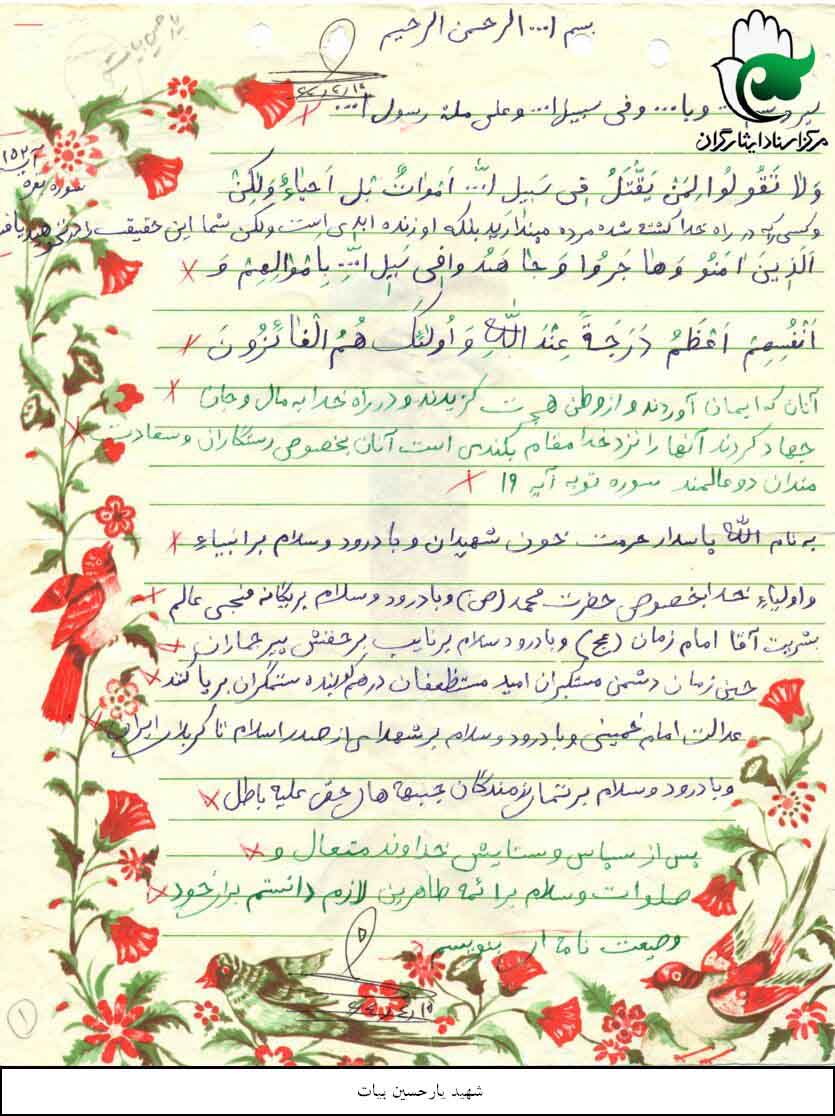 بسم ا... الرحمن الرحیم
یارحسین بیات
مرکز اسناد ایثارگران
وبا... وفی سبیل ا... وعلی ملة رسول ا...
آیه ۱۵۲
سوره بقره
وَلا تَقُولُوا لِمَنْ یُقْتَلُ فِی سَبِیلِ ا... اَمْواتٌ بَلْ اَحْیاءٌ وَلکِنْ
وکسی را که در راه خدا کشته شده مرده مپندارید بلکه او زنده ابدی است ولکن شما این حقیقت را در نخواهید یافت
اَلَّذِینَ امَنُو وَهاجَرُوا وَجاهَدُوا فِی سَبِیلِ ا... بِاَمْوالِهِمْ وَ
اَنْفُسِهِمْ اَعْظَمُ دَرَجَةً عِنْدَ اللّهِ وَ اُولئِکَ هُمُ الْفائِزُونَ
آنان که ایمان آوردند و از وطن هجرت گزیدند و در راه خدا به مال و جان
جهاد کردند آنها را نزد خدا مقام بلندی است آنان بخصوص رستگاران و سعادت
مندان دو عالمند سوره توبه آیه ۱۹
به نام الله پاسدار حرمت خون شهیدان و با درود و سلام بر انبیاءِ
و اولیاءِ خدا بخصوص حضرت محمد (ص) و با درود و سلام بر یگانه منجی عالم
بشریت آقا امام زمان (عج) و با درود سلام بر نایب بر حقش پیر جماران
خمینی زمان دشمن مستکبران امید مستظعفان درهم کوبنده ستمگران برپا کنند
عدالت امام خمینی و با درود و سلام بر شهدای از صدر اسلام تا کربلای ایران
و با درود و سلام بر تمان رزمندگان جبهه های حق علیه باطل
پس از سپاس و ستایش خداوند متعال و
صلوات و سلام بر ائمه طاهرین لازم دانستم برای خود
وصیعت نامه ای بنویسم
۱
شهید یارحسین بیات